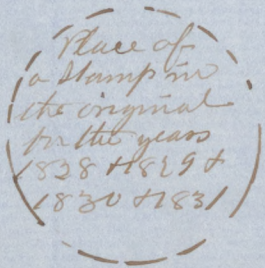 Place of
a Stamp in
the original
for the years
1828 + 1829 +
1830 + 1831